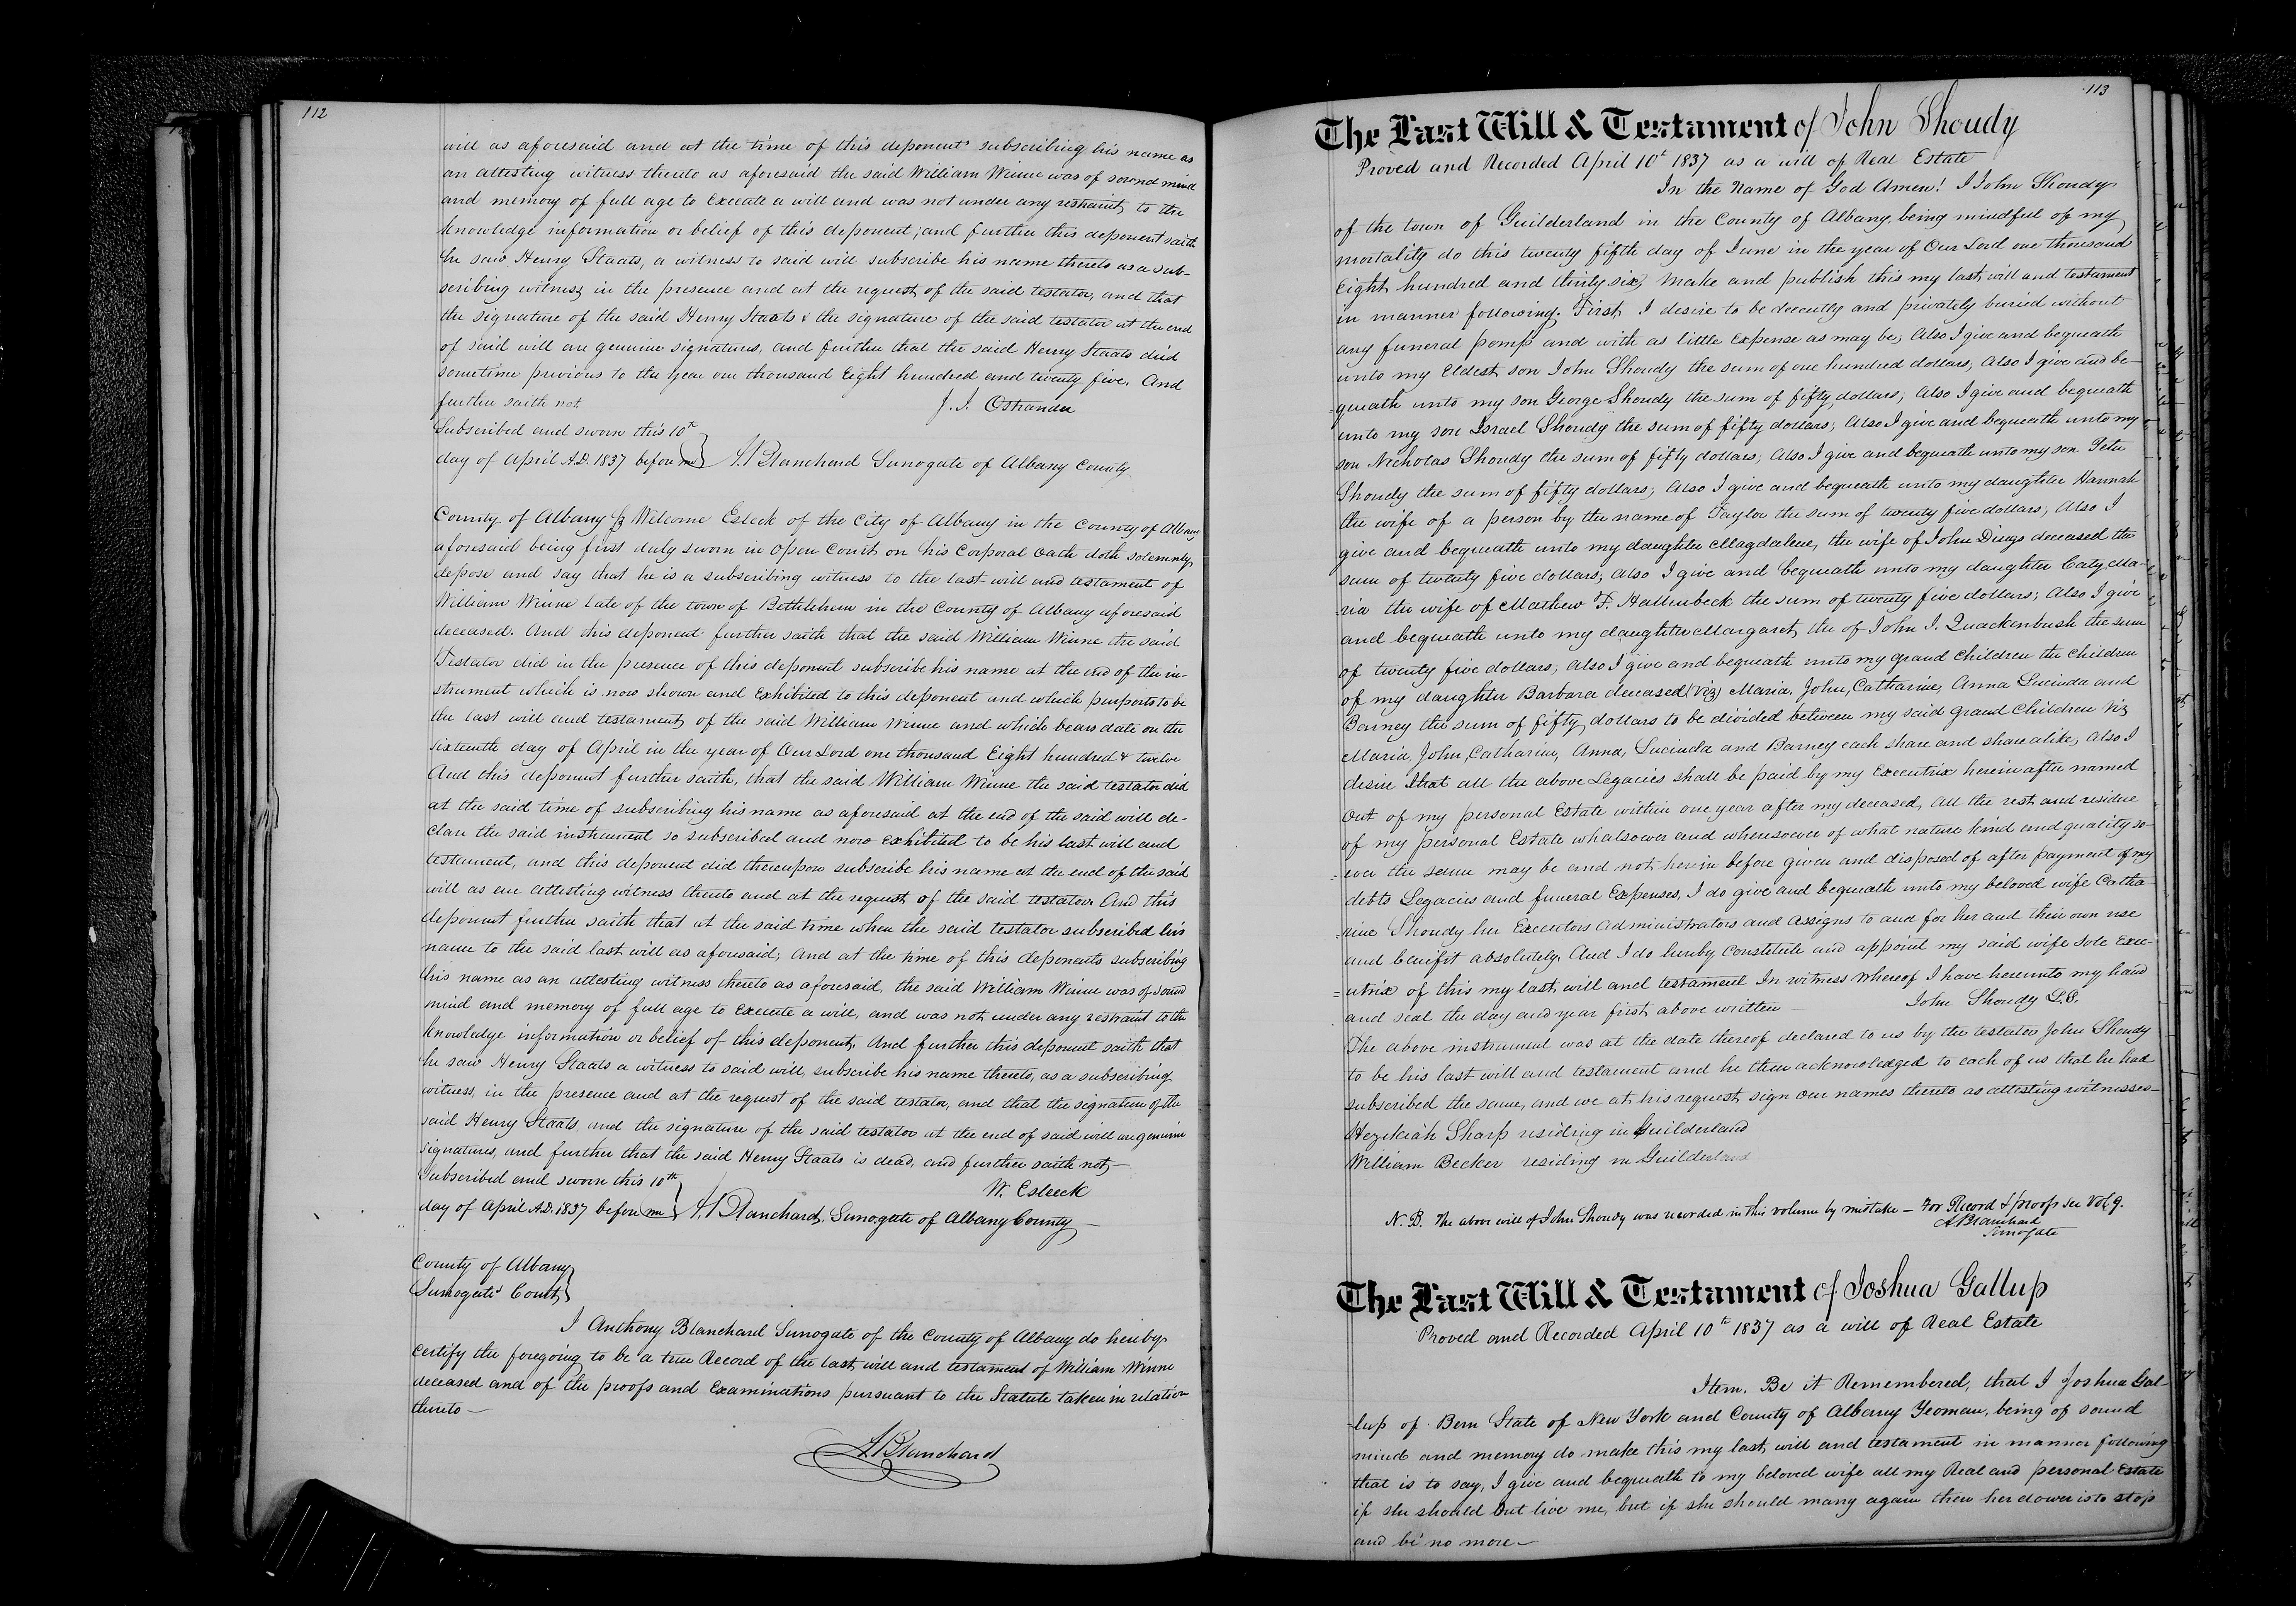 112
will as aforesaid and at the time of this deponents subscribing his name as
an attesting witness thereto as aforesaid the said William Winne was of sound mind
and memory of full age to Execute a will and was not under any restraint to the
knowledge information or belief of this deponent; and further this deponent saith
he saw Henry Staats, a witness to said will subscribe his name thereto as a sub-
scribing witness in the presence and at the request of the said testator, and that
the signature of the said Henry Staats & the signature of the said testator at the end
of said will are genuine signatures, and further that the said Henry Staats died
sometime previous to the year one thousand Eight hundred and twenty five. And
further saith not.
J. I. Ostrander
Subscribed and sworn this 10th
day of April A.D. 1837 before me } A. Blanchard Surrogate of Albany County
County of Albany ss Welcome Esleeck of the City of Albany in the County of Albany
aforesaid being first duly sworn in Open Court on his Corporal Oath doth solemnly
depose and say that he is a subscribing witness to the last will and testament of
William Winne late of the town of Bethlehem in the County of Albany aforesaid
deceased. And this deponent further saith that the said William Winne the said
Testator did in the presence of this deponent subscribe his name at the end of the in-
strument which is now shown and Exhibited to this deponent and which purports to be
the last will and testament of the said William Winne and which bears date on the
sixteenth day of April in the year of Our Lord one thousand Eight hundred & twelve
And this deponent further saith, that the said William Winne the said testator did
at the said time of subscribing his name as aforesaid at the end of the said will de-
clare the said instrument so subscribed and now exhibited to be his last will and
testament, and this deponent did thereupon subscribe his name at the end of the said
will as an attesting witness thereto and at the request of the said testator. And this
deponent further saith that at the said time when the said testator subscribed his
name to the said last will as aforesaid, and at the time of this deponents subscribing
his name as an attesting witness thereto as aforesaid, the said William Winne was of sound
mind and memory of full age to Execute a will, and was not under any restraint to the
knowledge information or belief of this deponent, And further this deponent saith that
he saw Henry Staats a witness to said will, subscribe his name thereto, as a subscribing
witness, in the presence and at the request of the said testator, and that the signature of the
said Henry Staats, and the signature of the said testator at the end of said will are genuine
signatures, and further that the said Henry Staats is dead, and further saith not,—
Subscribed and sworn this 10th
W. Esleeck
day of April A.D. 1837 before me } A. Blanchard, Surrogate of Albany County —
County of Albany }
Surrogates Court }
I Anthony Blanchard Surrogate of the County of Albany do hereby
certify the foregoing to be a true Record of the last will and testament of William Winne
deceased and of the proofs and Examinations pursuant to the Statute taken in relation
thereto —
A. Blanchard
113
The Last Will & Testament of John Shoudy
Proved and Recorded April 10th 1837 as a will of Real Estate
In the Name of God Amen! I John Shoudy
of the town of Guilderland in the County of Albany, being mindful of my
mortality do this twenty fifth day of June in the year of Our Lord one thousand
Eight hundred and thirty six, make and publish this my last will and testament
in manner following. First, I desire to be decently and privately buried without
any funeral pomp and with as little Expense as may be; Also I give and bequeath
unto my Eldest son John Shoudy the sum of one hundred dollars; Also I give and be-
queath unto my son George Shoudy the sum of fifty dollars; Also I give and bequeath
unto my son Israel Shoudy the sum of fifty dollars; Also I give and bequeath unto my
son Nicholas Shoudy the sum of fifty dollars; Also I give and bequeath unto my son Peter
Shoudy the sum of fifty dollars; Also I give and bequeath unto my daughter Hannah
the wife of a person by the name of Taylor the sum of twenty five dollars; Also I
give and bequeath unto my daughter Magdalene, the wife of John Dings deceased the
sum of twenty five dollars; Also I give and bequeath unto my daughter Caty Ma-
ria the wife of Mathew F. Hallenbeck the sum of twenty five dollars; Also I give
and bequeath unto my daughter Margaret, the of John I. Quackenbush the sum
of twenty five dollars; Also I give and bequeath unto my grand Children the Children
of my daughter Barbara deceased (viz) Maria, John, Catharine, Anna Lucinda and
Barney the sum of fifty dollars to be divided between my said grand Children viz
Maria, John, Catharine, Anna, Lucinda and Barney each share and share alike, Also I
desire that all the above Legacies shall be paid by my Executrix herein after named
out of my personal Estate within one year after my deceased, All the rest and residue
of my personal Estate whatsoever and wheresoever of what nature kind and quality so-
ever the same may be and not herein before given and disposed of after payment of my
debts Legacies and funeral Expenses, I do give and bequeath unto my beloved wife Catha-
rine Shoudy her Executors Administrators and Assigns to and for her and their own use
and benifit absolutely. And I do hereby Constitute and appoint my said wife sole Exec-
utrix of this my last will and testament In witness whereof I have hereunto my hand
and seal the day and year first above written — John Shoudy L.S.
The above instrument was at the date thereof declared to us by the testator John Shoudy
to be his last will and testament and he then acknowledged to each of us that he had
subscribed the same, and we at his request sign our names thereto as attesting witnesses—
Hezekiah Sharp residing in Guilderland
William Becker residing in Guilderland
N.B. The above will of John Shoudy was recorded in this volume by mistake — For Record & proofs see Vol. 9.
A Blanchard
Surrogate
The Last Will & Testament of Joshua Gallup
Proved and Recorded April 10th 1837 as a will of Real Estate
Item. Be it Remembered, that I Joshua Gal-
lup of Bern State of New York and County of Albany Yeoman, being of sound
mind and memory do make this my last will and testament in manner following
that is to say, I give and bequeath to my beloved wife all my Real and personal Estate
if she should out live me, but if she should marry again then her dower is to stop
and be no more—